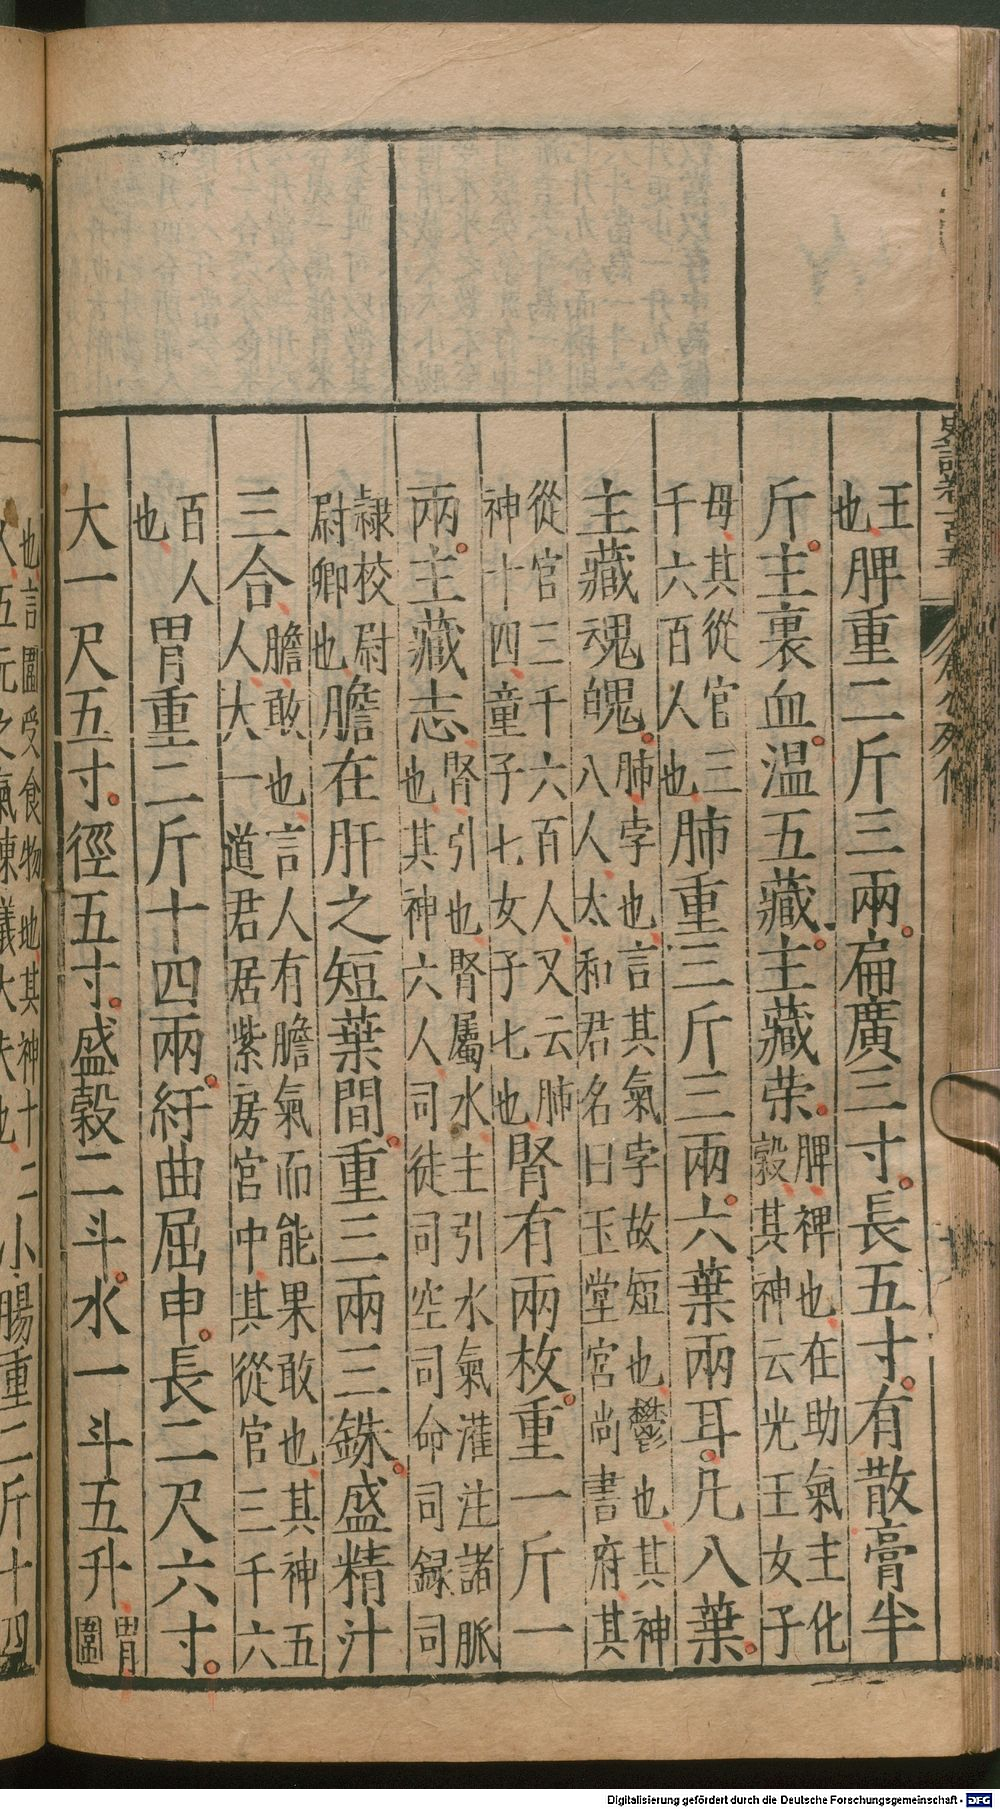 史記卷一百五 倉公列傳
王也脾重二斤三兩扁廣三寸長五寸有散膏半
斤主裹血温五藏主藏荣脾裨也在助氣主化穀其神云光王女子
母其從官三千六百人也肺重三斤三兩六葉兩耳凡八葉
主藏魂魄肺孛也言其氣孛故短也鬱也其神八人太和君名曰玉堂宮尚書府其
從官三千六百人又云肺神十四童子七女子七也腎有兩枚重一斤一
兩主藏志腎引也腎屬水主引水氣灌注諸脈也其神六人司徒司空司命司録司
隷校尉尉卿也膽在肝之短葉間重三兩三銖盛精汁
三合膽敢也言人有膽氣而能果敢也其神五人大一道君居紫房宮中其從官三千六
百人也胃重二斤十四兩紆曲屈申長二尺六寸
大一尺五寸徑五寸盛穀二斗水一斗五升胃圍
也言圍受食物地其神十二人五元之氣諫議大夫也小腸重二斤十四
Digitalisierung gefördert durch die Deutsche Forschungsgemeinschaft - DFG